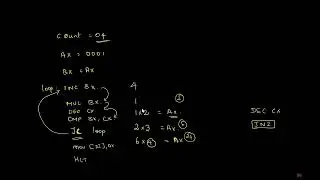 Count = 04
AX = 0001
BX = AX
loop: INC BX.
MUL BX.
DEC CX
CMP BX, CX
JC loop
MOV [SI], AX
HLT
4
1
1×2 = AX 2
2×3 = AX 6
6×4 = AX 24
DEC CX
JNZ